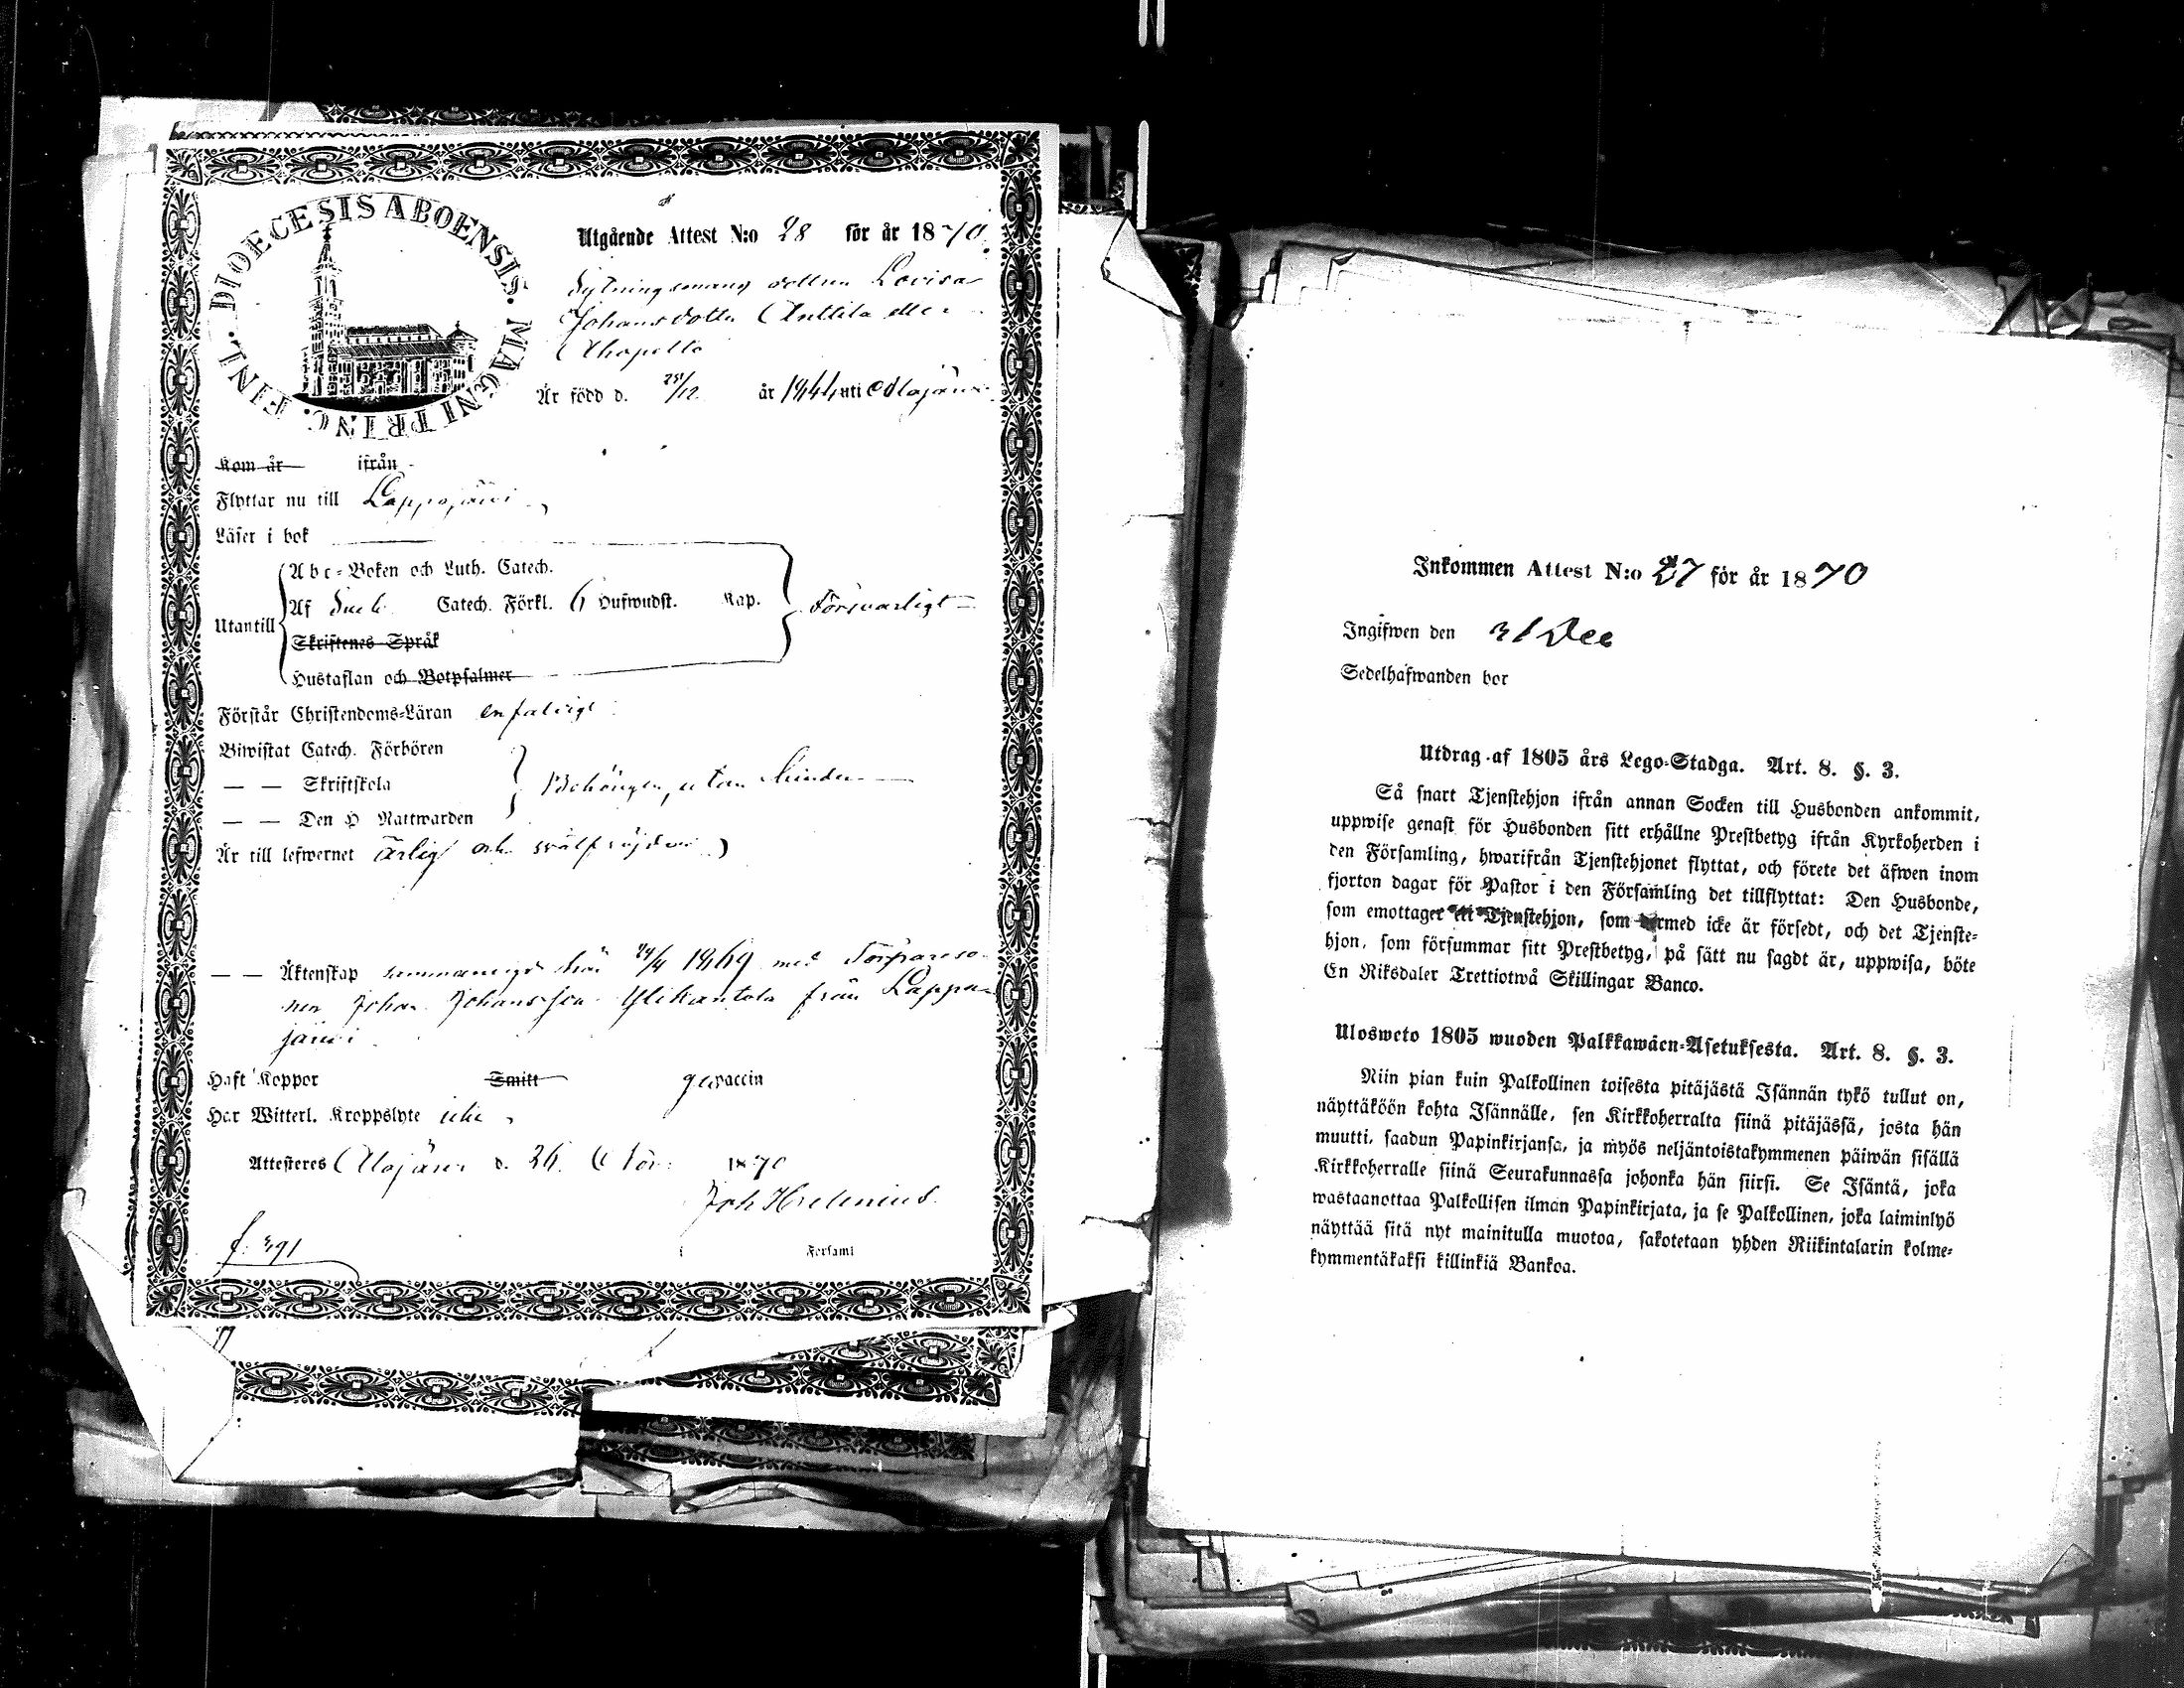 DIOECESIS ABOENSIS. MAGNI PRINC. FINL.
Utgående Attest N:o 28 för år 1870.
Sytningsmans dottren Lovisa
Johansdotter Anttila eller
Är född d. 25/12 år 1844 uti Alajärvi
Kom år ifrån
Flyttar nu till Lappajärvi
Läser i bok
Utantill
Abc-Boken och Luth. Catech.
Af Sveb. Catech. Förkl. 6 Hufwudst. Kap. Försvarligt
Skriftenes Språk
Hustaflan och Botpsalmer
Förstår Christendoms-Läran enfaldigt
Biwistat Catech. Förhören
— — Skriftskola
— — Den H Nattwarden
Behörigen, utan hinder
Är till lefwernet ärlig och välfräjdad
— — Äktenskap sammanvigd här 24/4 1869 med Torpareso-
nen Johan Johansson Ylikantola från Lappa-
järvi
Haft Koppor Smitt vaccin
Har Witterl. Kroppslyte icke
Attesteres Alajärvi d. 26 Octbr: 1870
Joh Helenius
f. 391
Forsaml
Inkommen Attest N:o 27 för år 1870
Ingifwen den 31 Dec
Sedelhafwanden bor
Utdrag af 1805 års Lego-Stadga. Art. 8. §. 3.
Så snart Tjenstehjon ifrån annan Socken till Husbonden ankommit,
uppwise genast för Husbonden sitt erhållne Prestbetyg ifrån Kyrkoherden i
den Församling, hwarifrån Tjenstehjonet flyttat, och förete det äfwen inom
fjorton dagar för Pastor i den Församling det tillflyttat: Den Husbonde,
som emottager ett Tjenstehjon, som dermed icke är försedt, och det Tjenste-
hjon, som försummar sitt Prestbetyg, på sätt nu sagdt är, uppwisa, böte
En Riksdaler Trettiotwå Skillingar Banco.
Ulosweto 1805 wuoden Palkkawäen-Asetuksesta. Art. 8. §. 3.
Niin pian kuin Palkollinen toisesta pitäjästä Isännän tykö tullut on,
näyttäköön kohta Isännälle, sen Kirkkoherralta siinä pitäjässä, josta hän
muutti, saadun Papinkirjansa, ja myös neljäntoistakymmenen päiwän sisällä
Kirkkoherralle siinä Seurakunnassa johonka hän siirsi. Se Isäntä, joka
wastaanottaa Palkollisen ilman Papinkirjata, ja se Palkollinen, joka laiminlyö
näyttää sitä nyt mainitulla muotoa, sakotetaan yhden Riikintalarin kolme-
kymmentäkaksi killinkiä Bankoa.